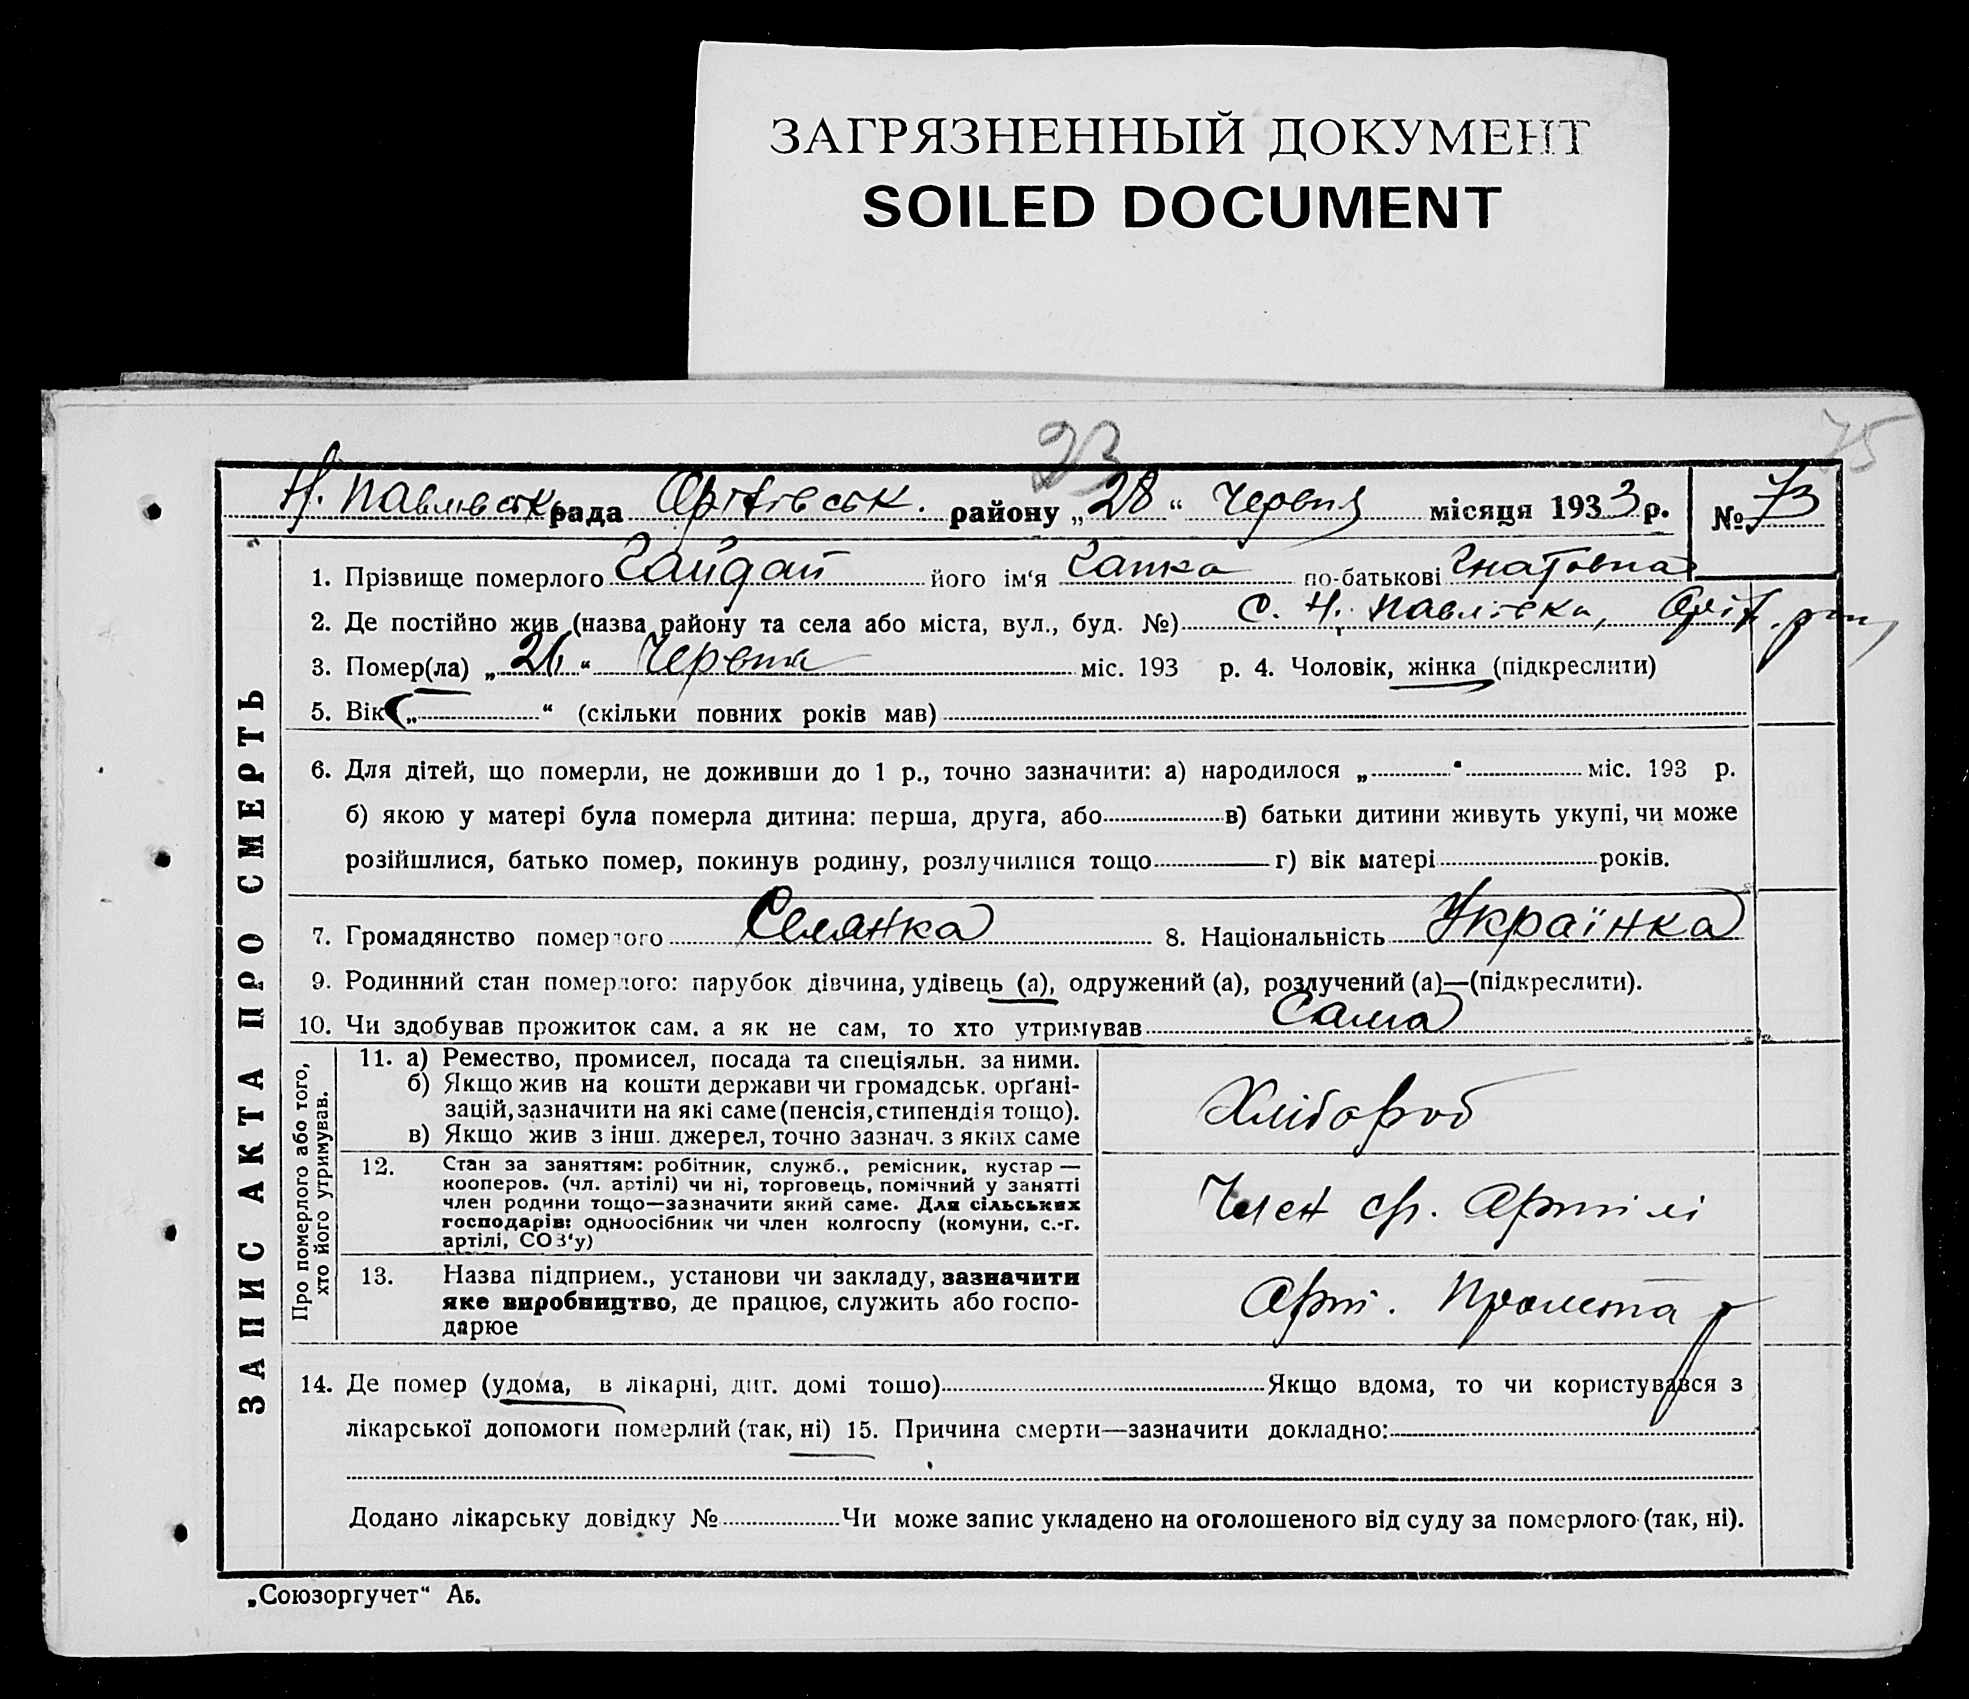 ЗАГРЯЗНЕННЫЙ ДОКУМЕНТ
SOILED DOCUMENT
23 75
Н. Павлівськ. рада Оріхівськ. району „28“ Червня місяця 1933 р. № 73
ЗАПИС АКТА ПРО СМЕРТЬ
1. Прізвище померлого Гайдай його ім'я Гапка по-батькові Гнатовна
2. Де постійно жив (назва району та села або міста, вул., буд. №) с. Н. Павлівка, Оріх. рай,
3. Помер(ла) „26“ Червня міс. 193 р. 4. Чоловік, жінка (підкреслити)
5. Вік „ “ (скільки повних років мав)
6. Для дітей, що померли, не доживши до 1 р., точно зазначити: а) народилося „ “ міс. 193 р.
б) якою у матері була померла дитина: перша, друга, або в) батьки дитини живуть укупі, чи може
розійшлися, батько помер, покинув родину, розлучилися тощо г) вік матері років.
7. Громадянство померлого Селянка 8. Національність Українка
9. Родинний стан померлого: парубок дівчина, удівець (а), одружений (а), розлучений (а)—(підкреслити).
10. Чи здобував прожиток сам. а як не сам, то хто утримував Сама
Про померлого або того,
хто його утримував.
11. а) Ремество, промисел, посада та спеціяльн. за ними.
б) Якщо жив на кошти держави чи громадськ. орґані-
зацій, зазначити на які саме (пенсія, стипендія тощо).
в) Якщо жив з інш. джерел, точно зазнач. з яких саме
Хлібороб
12. Стан за заняттям: робітник, служб., ремісник, кустар —
кооперов. (чл. артілі) чи ні, торговець, помічний у занятті
член родини тощо—зазначити який саме. Для сільських
господарів: одноосібник чи член колгоспу (комуни, с.-г.
артілі, СОЗ'у)
Член с/г. Артілі
13. Назва підприєм., установи чи закладу, зазначити
яке виробництво, де працює, служить або госпо-
дарює
Арт. Пролетар
14. Де помер (удома, в лікарні, дит. домі тощо) Якщо вдома, то чи користувався з
лікарської допомоги померлий (так, ні) 15. Причина смерти—зазначити докладно:
Додано лікарську довідку № Чи може запис укладено на оголошеного від суду за померлого (так, ні).
„Союзоргучет“ Аб.